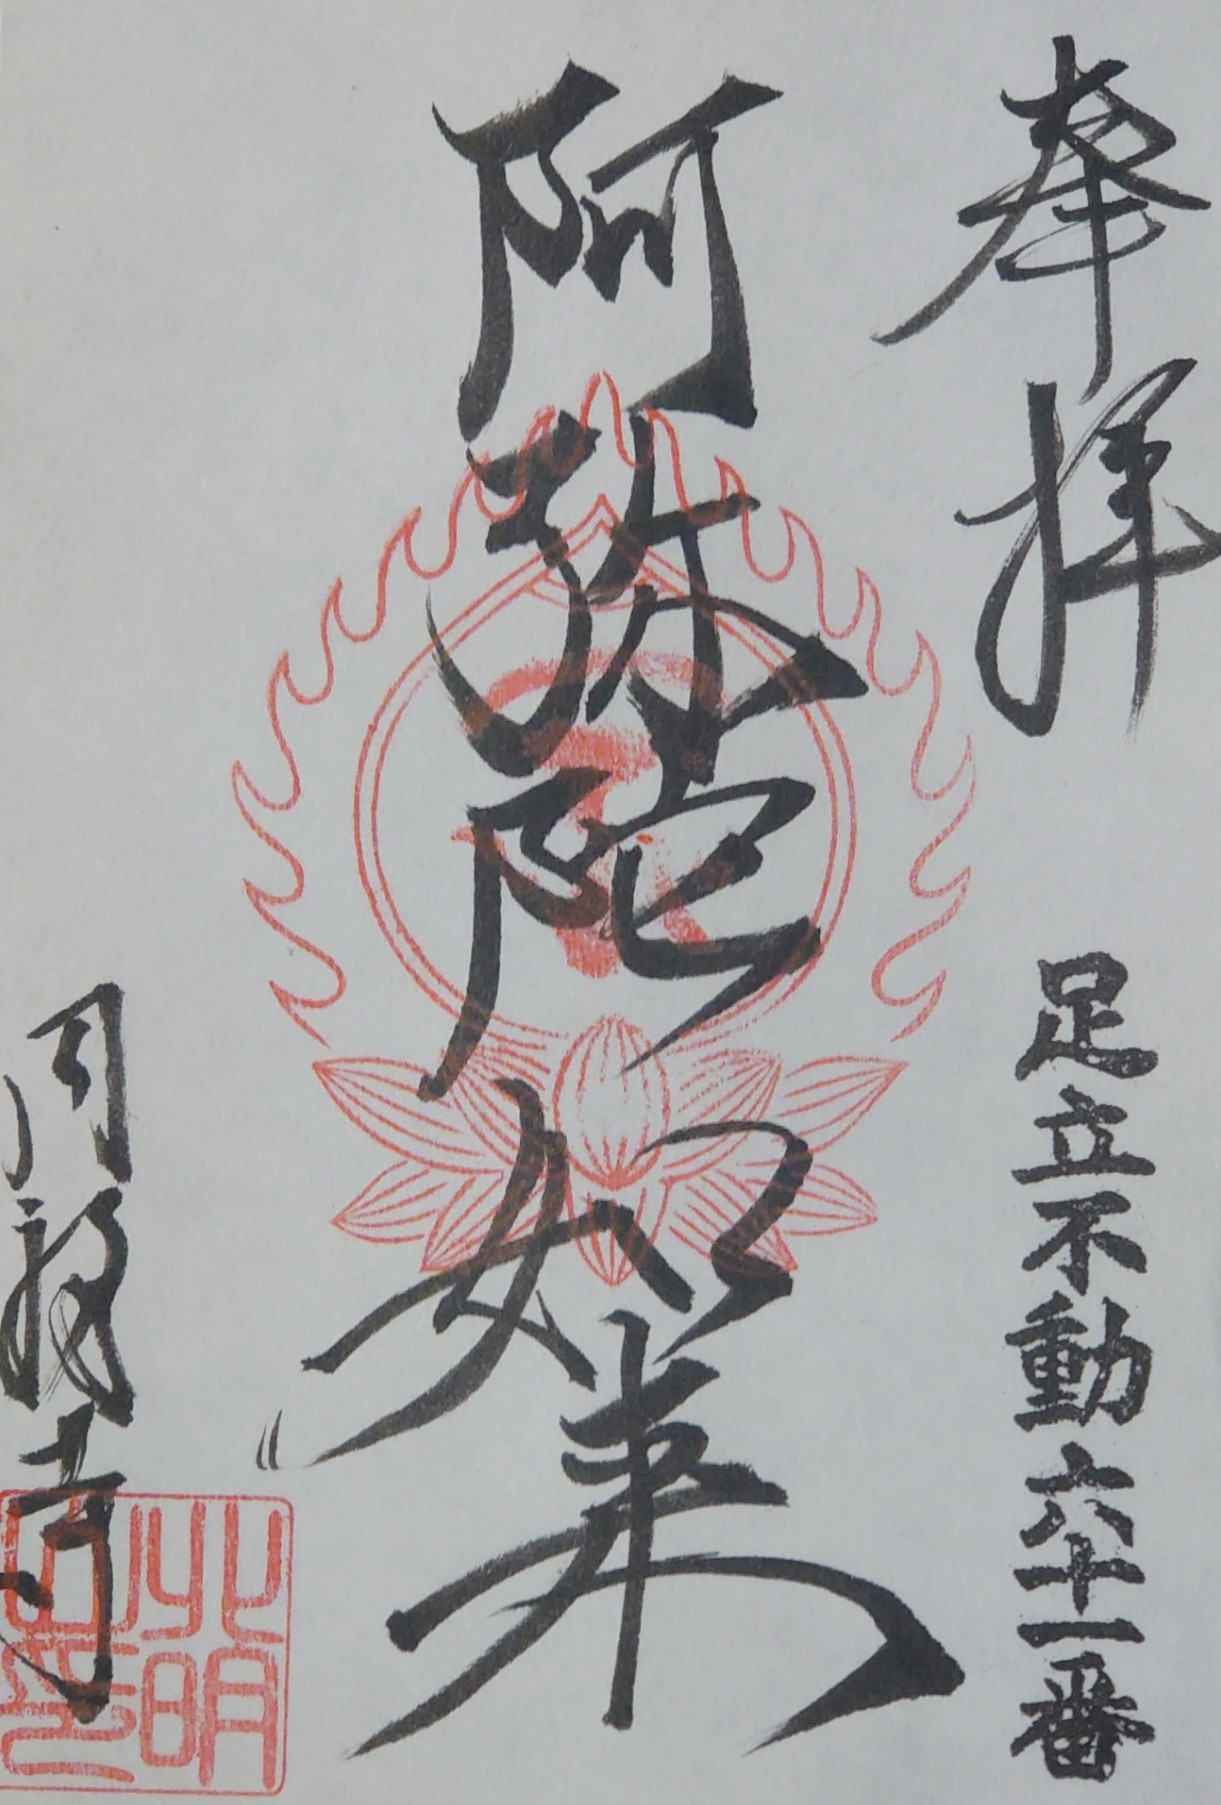 奉拝
足立不動六十一番
阿弥陀如来
円福寺
北明
山印